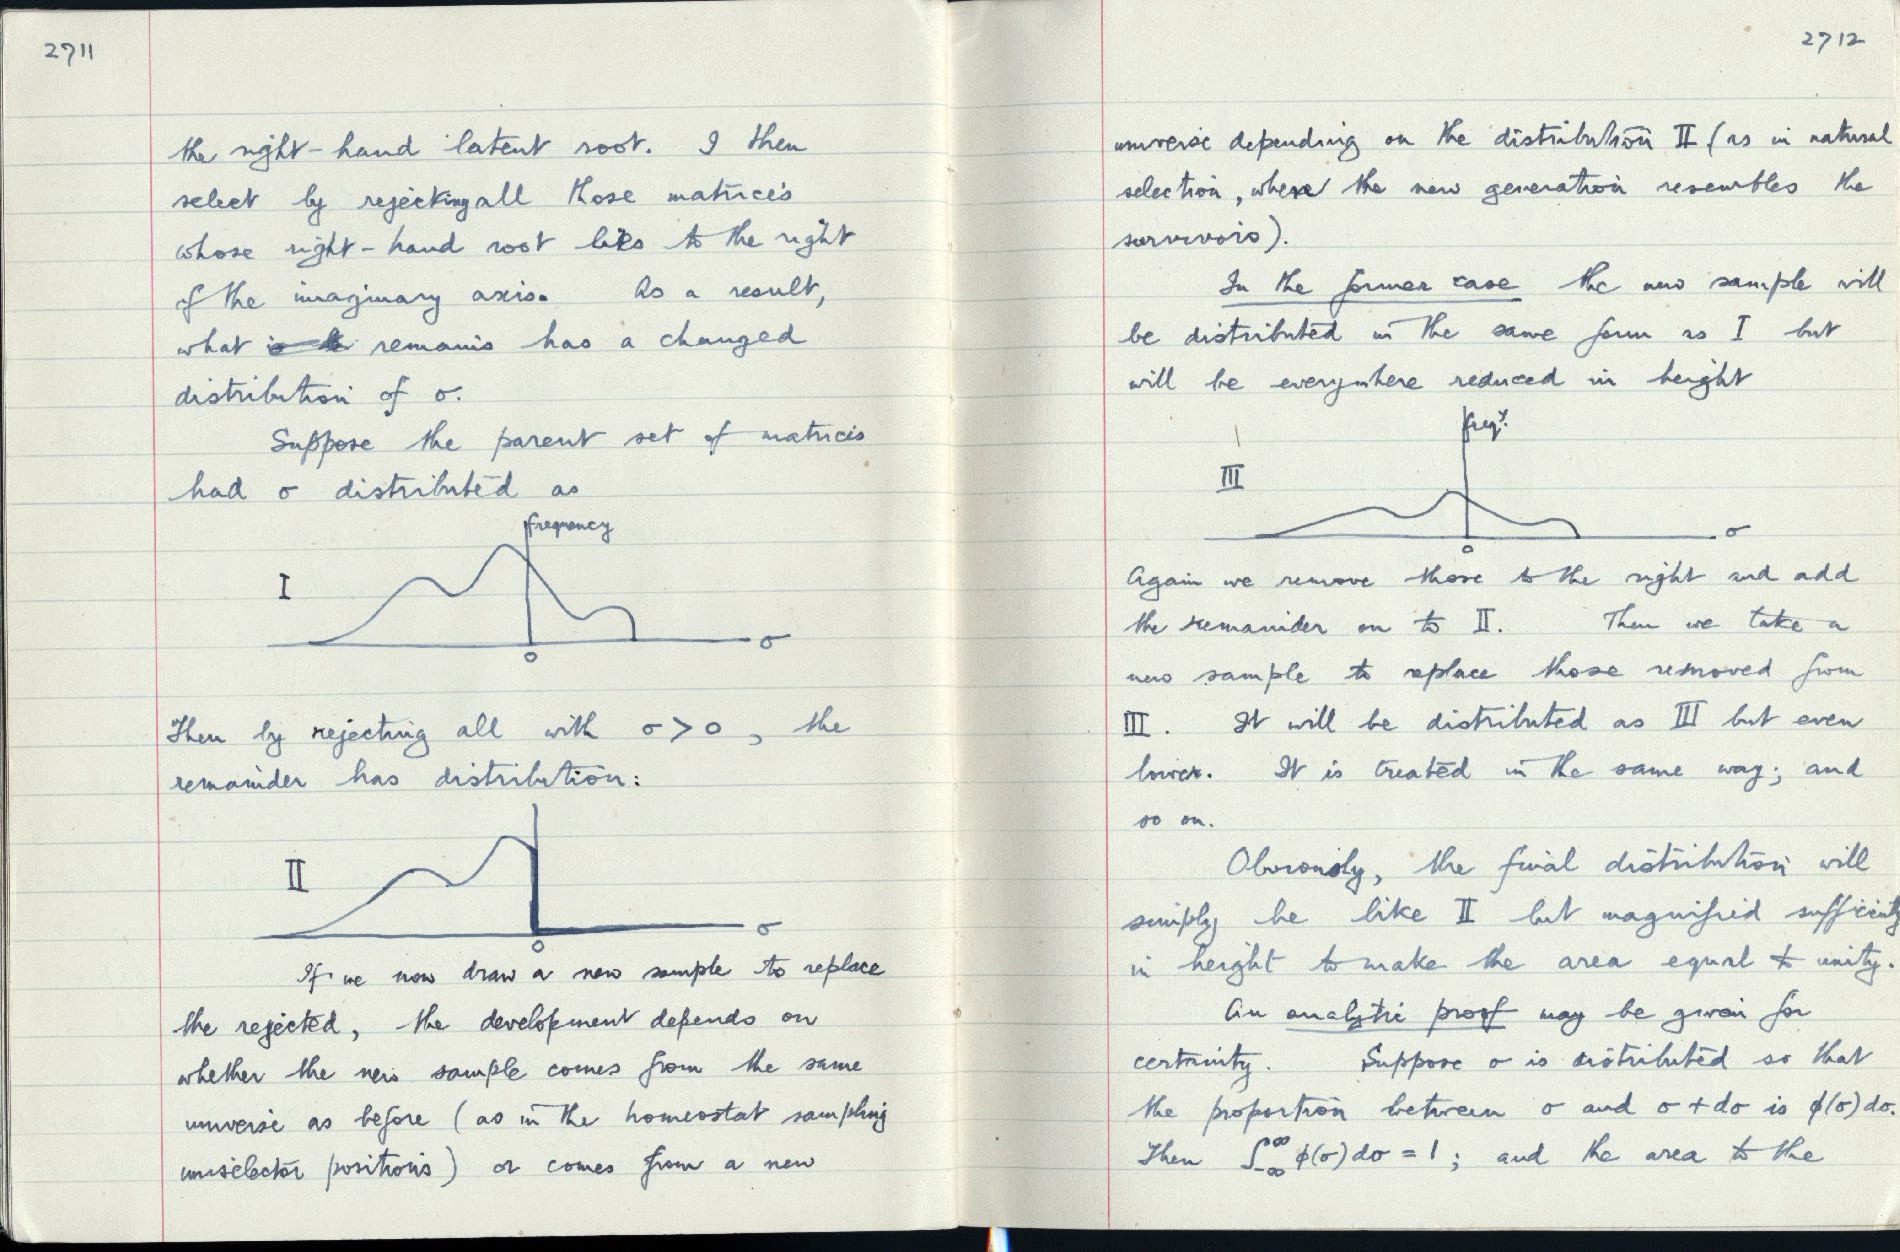 2711
the right-hand latent root. I then
select by rejecting all those matrices
whose right-hand root lies to the right
of the imaginary axis. As a result,
what remains has a changed
distribution of σ.
Suppose the parent set of matrices
had σ distributed as
frequency
I
σ
0
Then by rejecting all with σ > 0, the
remainder has distribution:
II
σ
0
If we now draw a new sample to replace
the rejected, the development depends on
whether the new sample comes from the same
universe as before (as in the homeostat sampling
uniselector positions) or comes from a new
2712
universe depending on the distribution II (as in natural
selection, where the new generation resembles the
survivors).
In the former case the new sample will
be distributed in the same form as I but
will be everywhere reduced in height
freqy.
III
σ
0
Again we remove those to the right and add
the remainder on to II. Then we take a
new sample to replace those removed from
III. It will be distributed as III but even
lower. It is treated in the same way; and
so on.
Obviously, the final distribution will
simply be like II but magnified sufficiently
in height to make the area equal to unity.
An analytic proof may be given for
certainty. Suppose σ is distributed so that
the proportion between σ and σ + dσ is φ(σ)dσ.
Then ∫₋∞^∞ φ(σ)dσ = 1; and the area to the